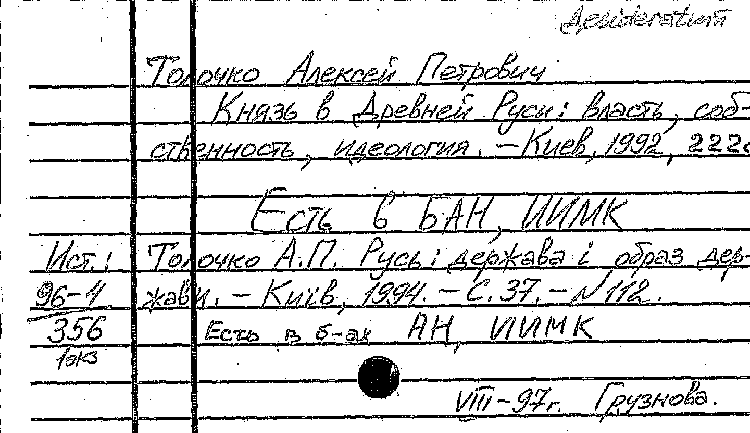 desideratum
Толочко Алексей Петрович
Князь в Древней Руси: власть, соб-
ственность, идеология. – Киев, 1992, 222с
Есть в БАН, ИИМК
Ист.: Толочко А.П. Русь: держава і образ дер-
96-4 жави. – Київ, 1994. – С. 37. – N 112.
356 Есть в б-ах АН, ИИМК
1экз
VIII-97г. Грузнова.